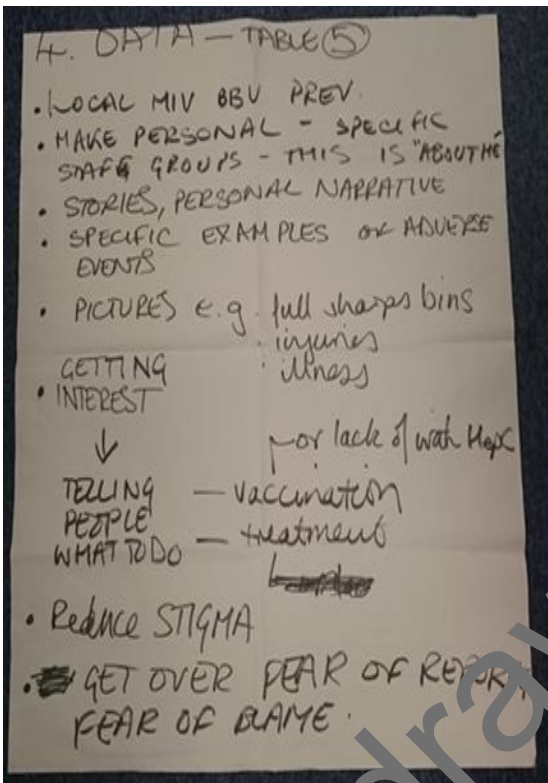 4. DATA — TABLE 5
• LOCAL HIV BBV PREV.
• MAKE PERSONAL - SPECIFIC
STAFF GROUPS - THIS IS "ABOUT ME
• STORIES, PERSONAL NARRATIVE
• SPECIFIC EXAMPLES OF ADVERSE
EVENTS
• PICTURES e.g. full sharps bins
· injuries
· illness
• GETTING
INTEREST
↓
or lack of with HepC
TELLING — vaccination
PEOPLE
WHAT TO DO — treatment
• Reduce STIGMA
• GET OVER FEAR OF
FEAR OF BLAME.